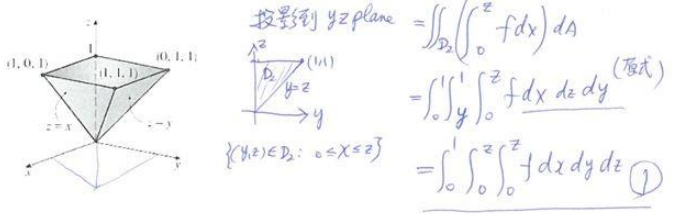 z
1
(1, 0, 1)
(0, 1, 1)
(1, 1, 1)
z = x
z = y
x
y
投影到 yz plane
z
(1,1)
D₂
y=z
y
{(y,z)∈D₂: 0≤x≤z}
=∬_{D₂}(∫₀^z f dx) dA
=∫₀¹∫_y¹∫₀^z f dx dz dy (原式)
=∫₀¹∫₀^z∫₀^z f dx dy dz ①